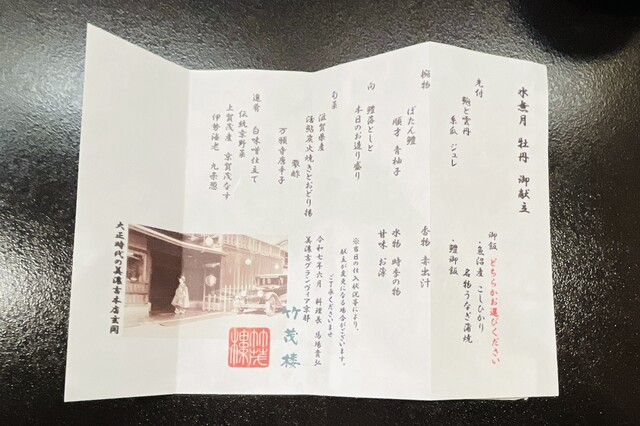 水無月 牡丹 御献立
先付
鮑と雲丹
糸瓜 ジュレ
椀物
ぼたん鱧
順才 青柚子
向
鱧落しと
本日のお造り盛り
旬菜
滋賀県産
活鮎炭火焼きとおどり揚
蓼酢
万願寺唐辛子
進肴
白味噌仕立て
伝統京野菜
上賀茂産 京賀茂なす
伊勢海老 九条葱
御飯 どちらかお選びください
・魚沼産 こしひかり
名物うなぎ蒲焼
・鱧御飯
香物 赤出汁
水物 時季の物
甘味 お薄
※当日の仕入状況等により、
献立が変更になる場合がございます。
ご了承くださいませ
令和七年六月 料理長 馬場貴弘
美濃吉グランヴィア京都
竹茂楼
竹茂樓
大正時代の美濃吉本店玄関